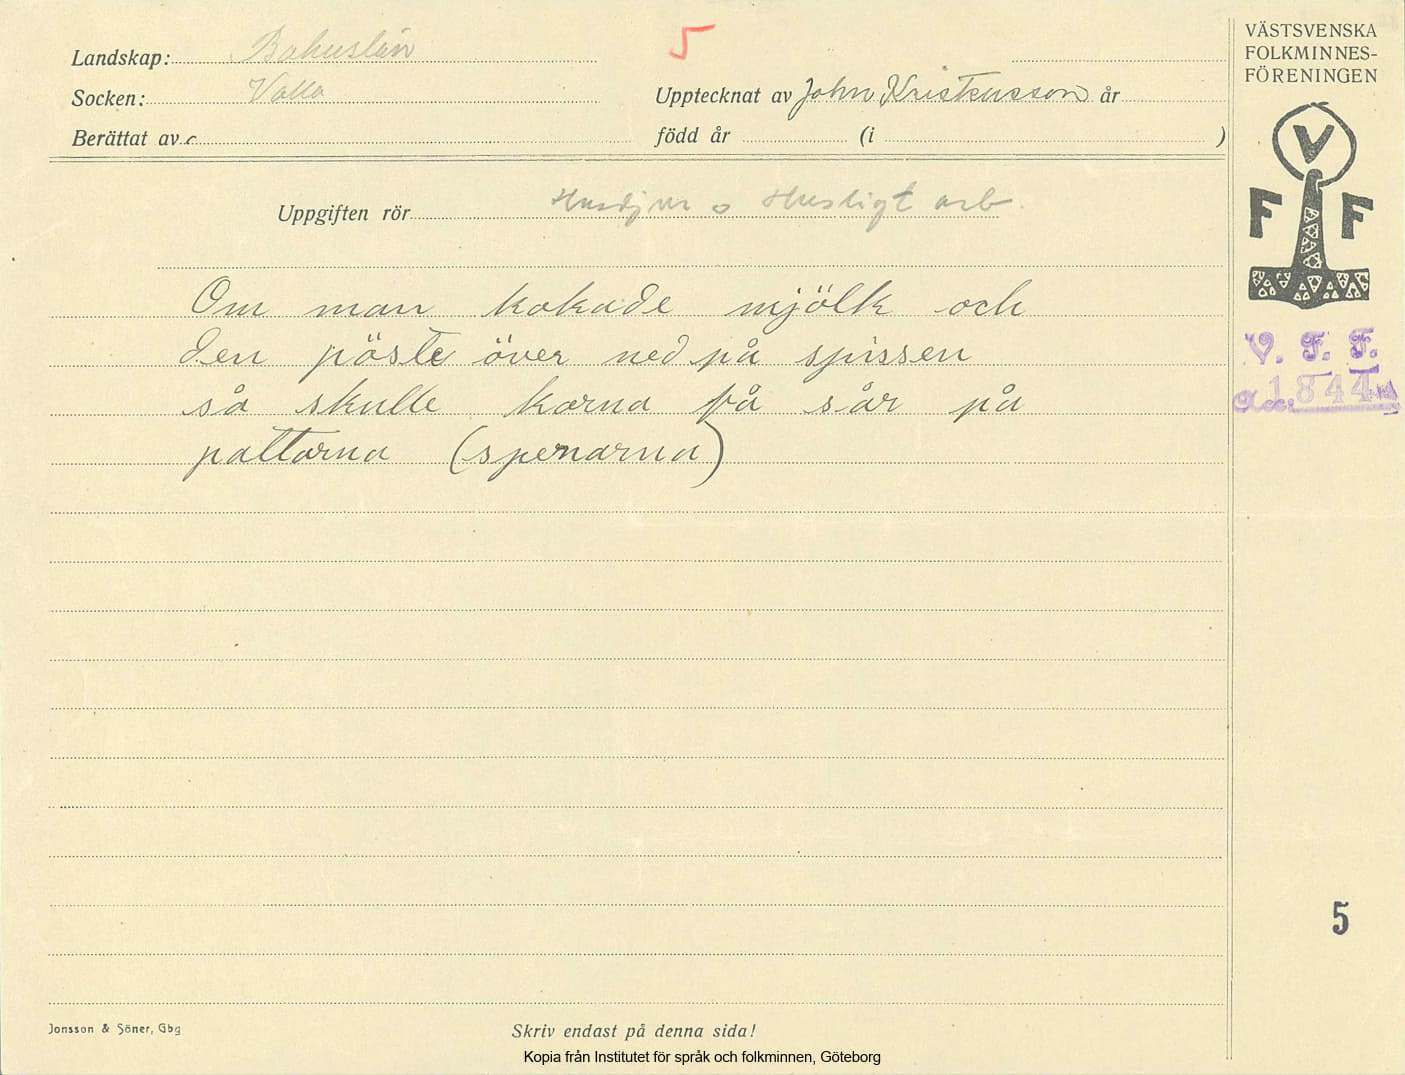 Landskap: Bohuslän
5
Socken: Valla
Upptecknat av John Kristensson år
Berättat av
född år (i )
Uppgiften rör Husdjur o Husligt arb.
Om man kokade mjölk och
den pöste över ned på spissen
så skulle korna få sår på
pattarna (spenarna)
VÄSTSVENSKA
FOLKMINNES-
FÖRENINGEN
V
F F
V. F. F.
Acc. 1844
5
Jonsson & Söner, Gbg
Skriv endast på denna sida!
Kopia från Institutet för språk och folkminnen, Göteborg